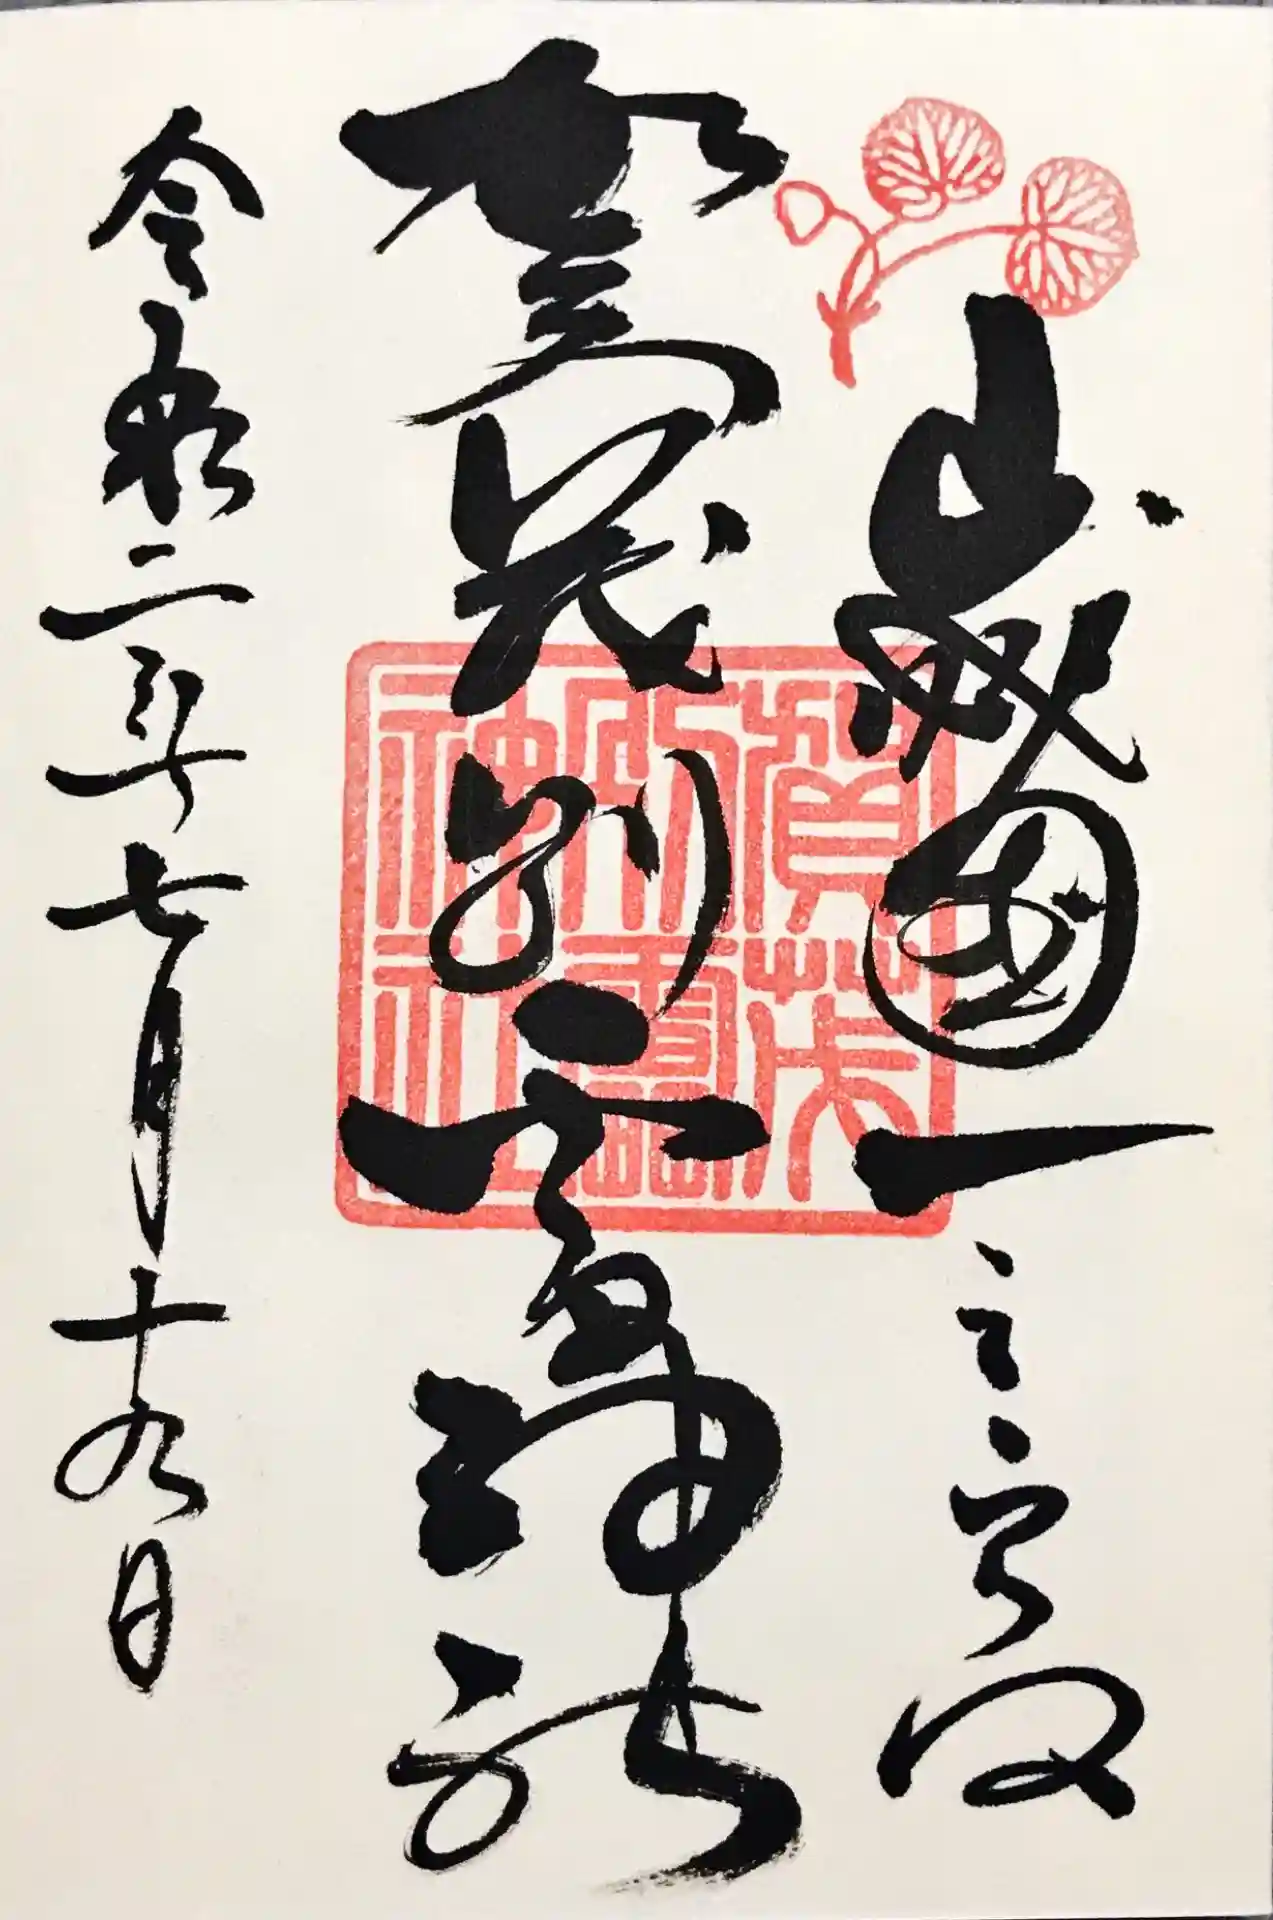 山城國一之宮
賀茂別雷神社
令和二年七月十九日
賀茂
別雷
神社